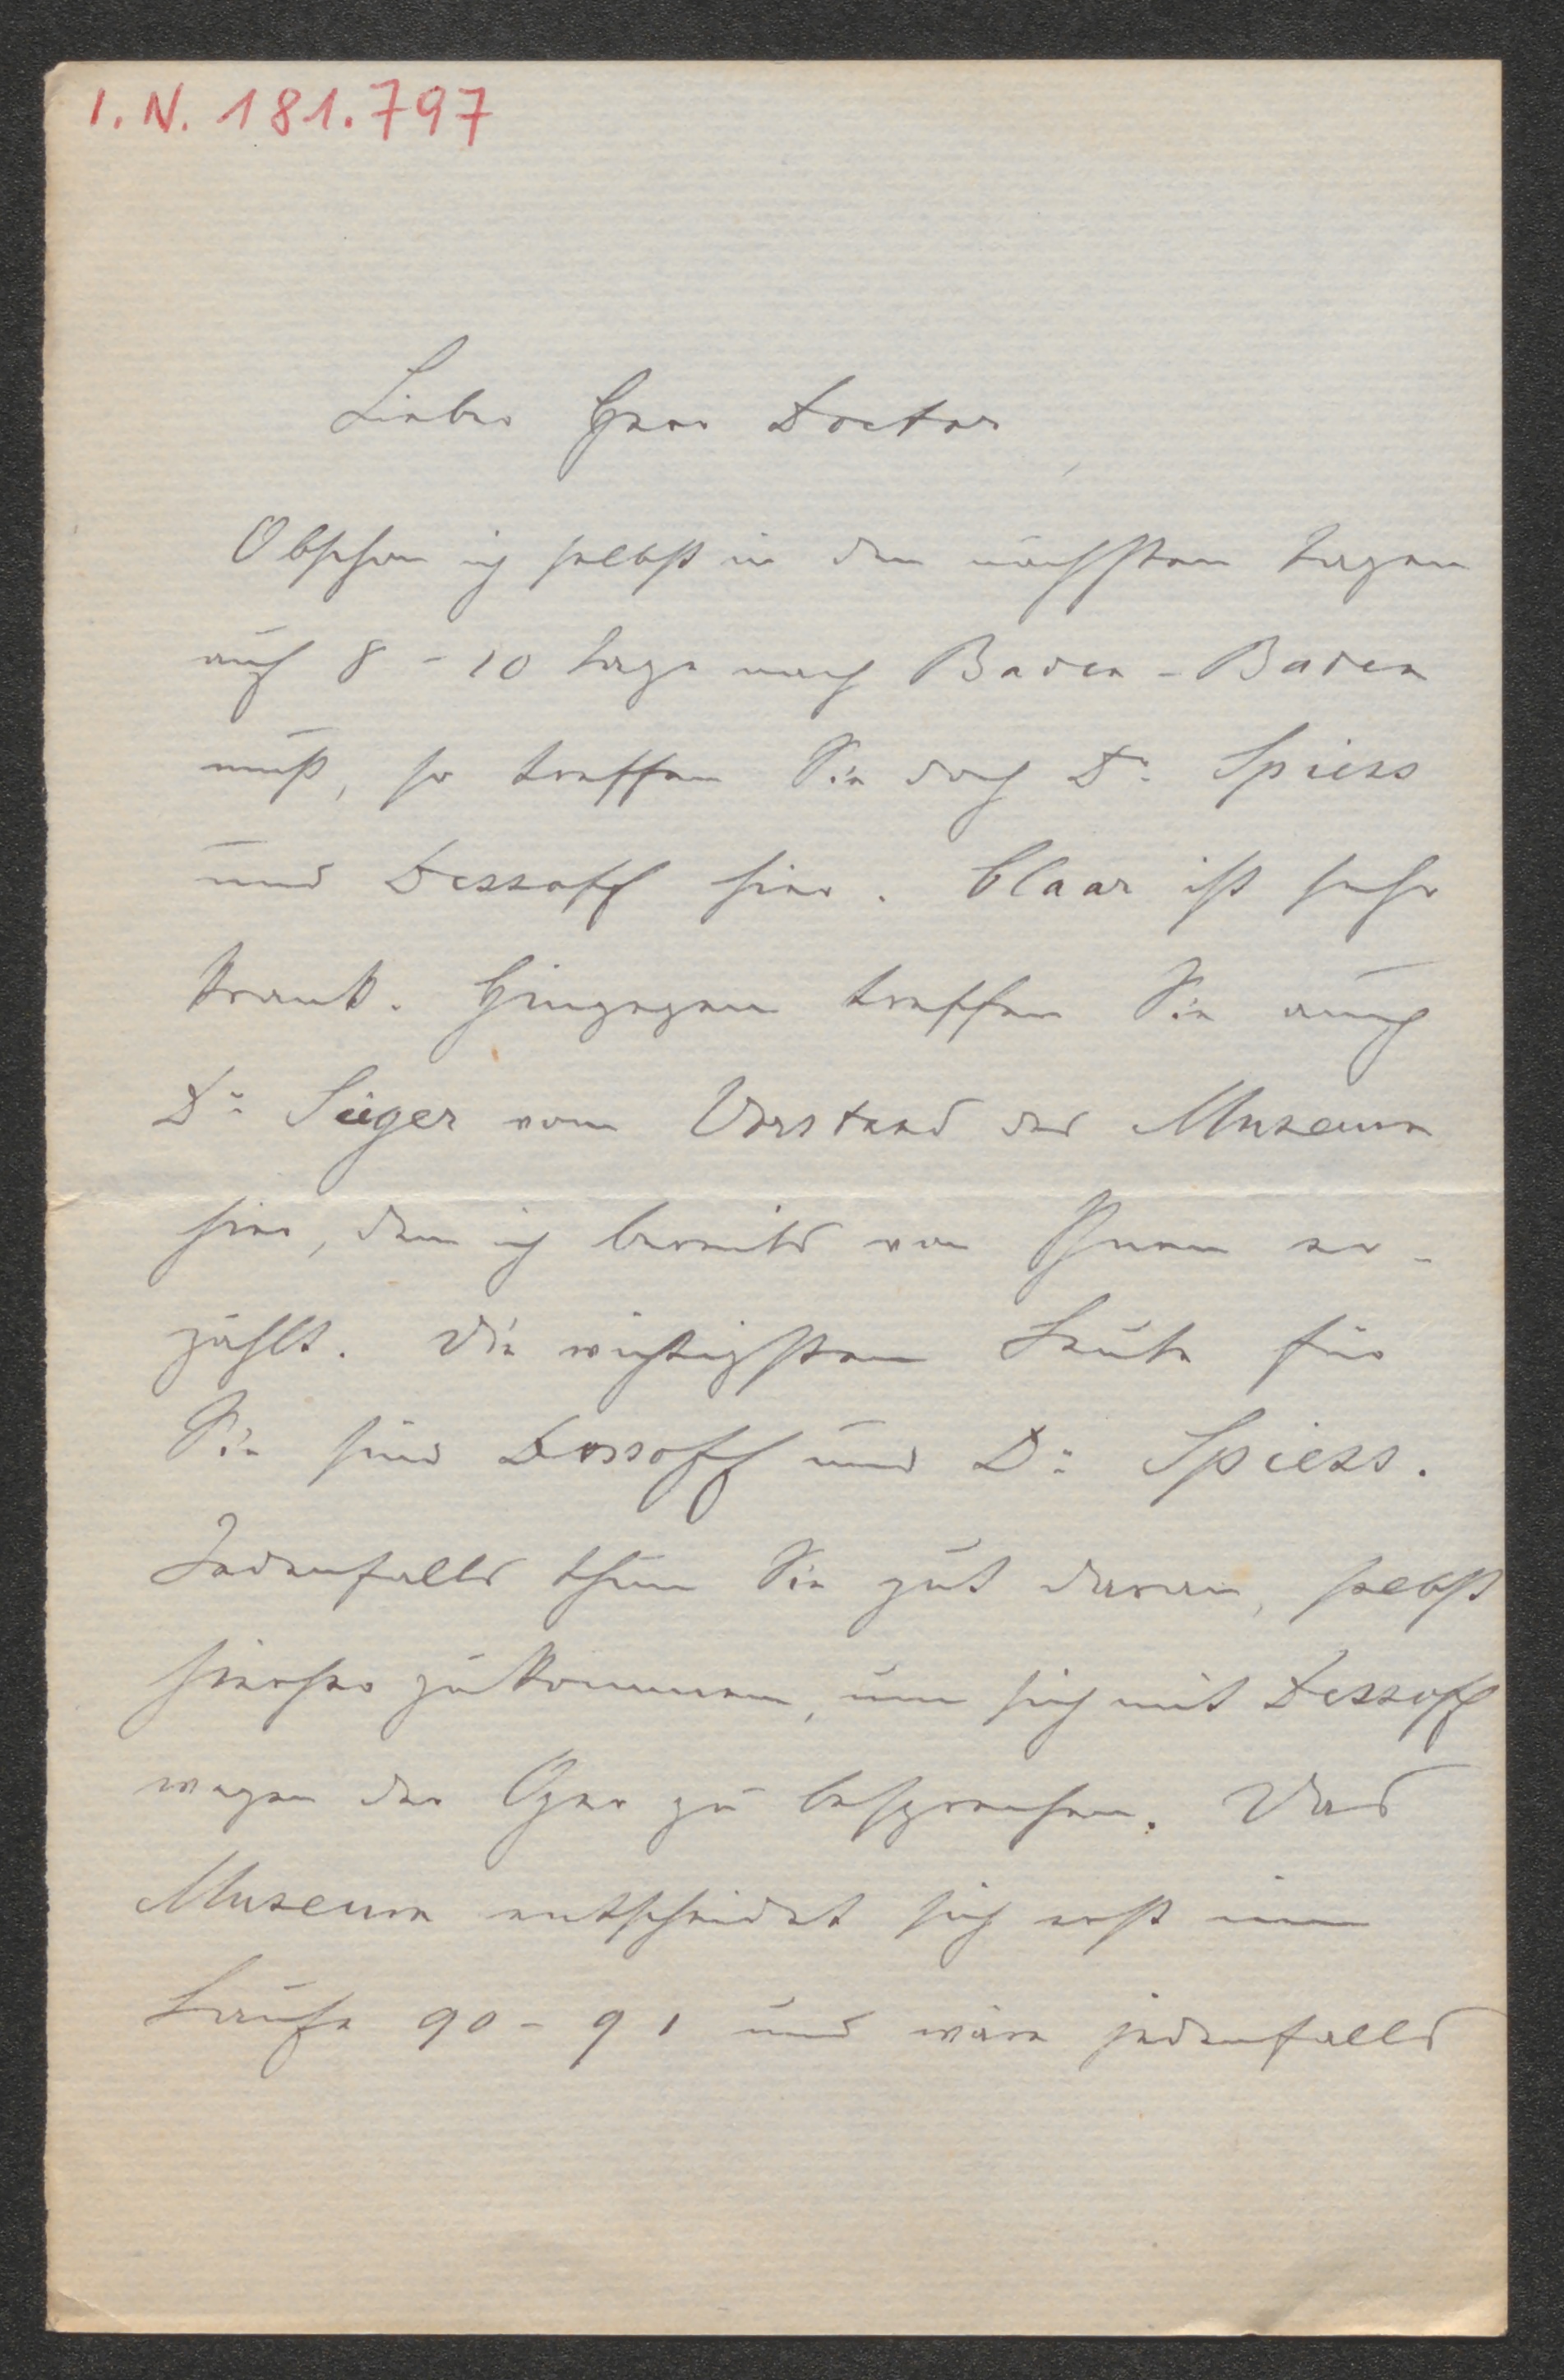 I.N. 181.797
Lieber Herr Doctor,
Obschon ich selbst in den nächsten Tagen
auf 8-10 Tage nach Baden-Baden
muß, so treffen Sie doch Dr. Spiess
und Dessoff hier. Claar ist sehr
krank. Hingegen treffen Sie auch
Dr. Sieger vom Vorstand des Museum
hier, dem ich bereits von Ihnen er-
zählt. Die wichtigsten Leute für
Sie sind Dessoff und Dr. Spiess.
Jedenfalls thun Sie gut daran, selbst
hierher zu kommen, um sich mit Dessoff
wegen der Oper zu besprechen. Das
Museum entscheidet sich erst im
Laufe 90-91 und wäre jedenfalls